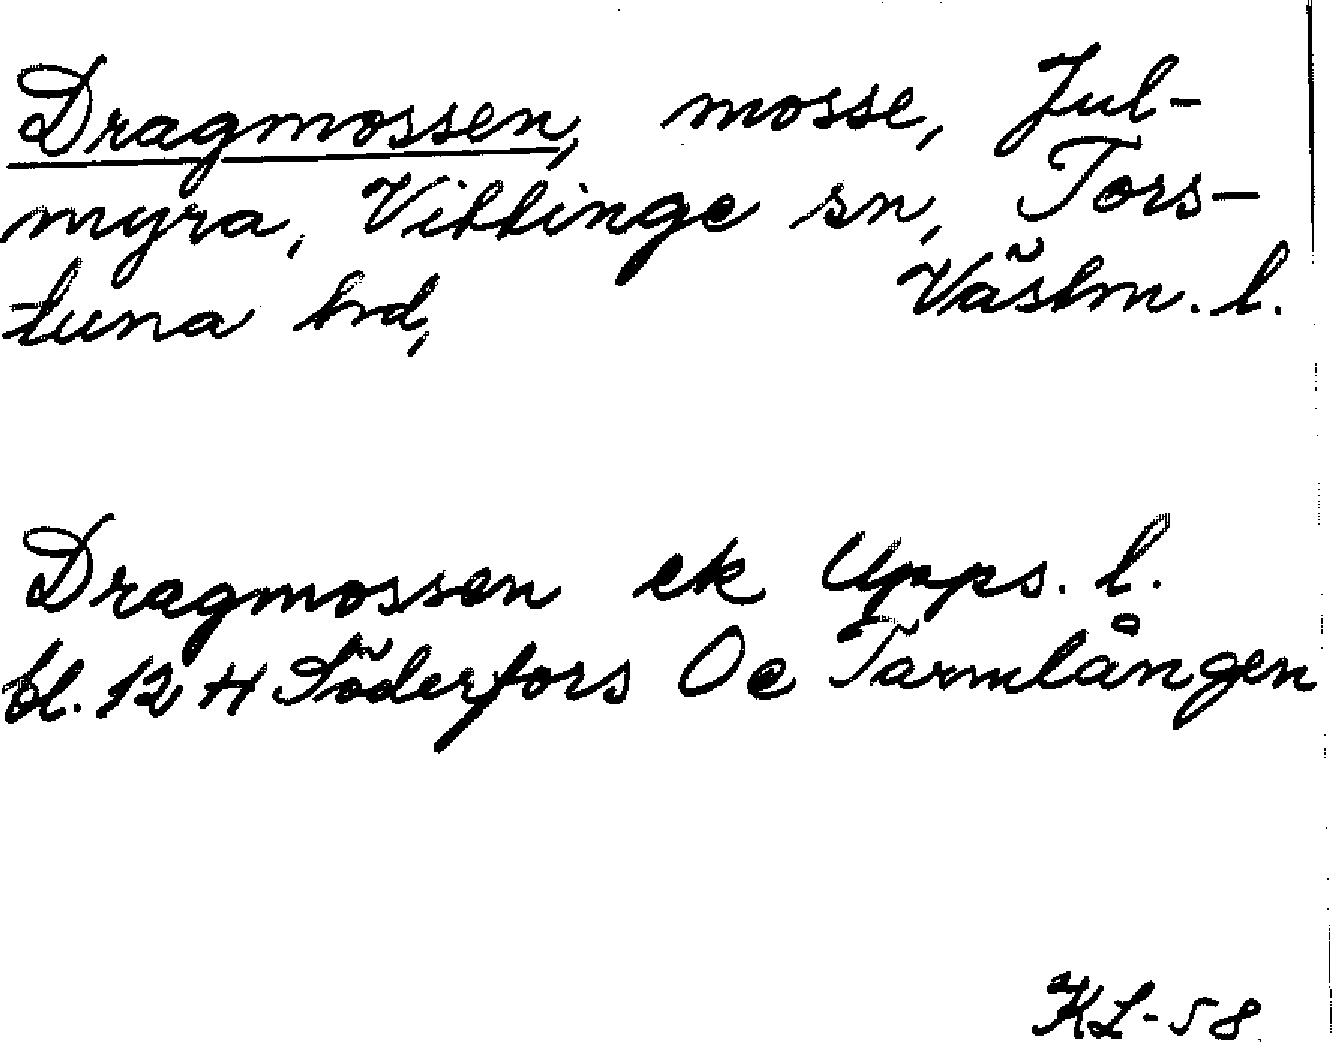 Dragmossen, mosse, Jul-
myra, Vittinge sn, Tors-
tuna hd, Västm. l.
Dragmossen ek Upps. l.
bl. 12 H Söderfors Oc Tarmlången
KL-58